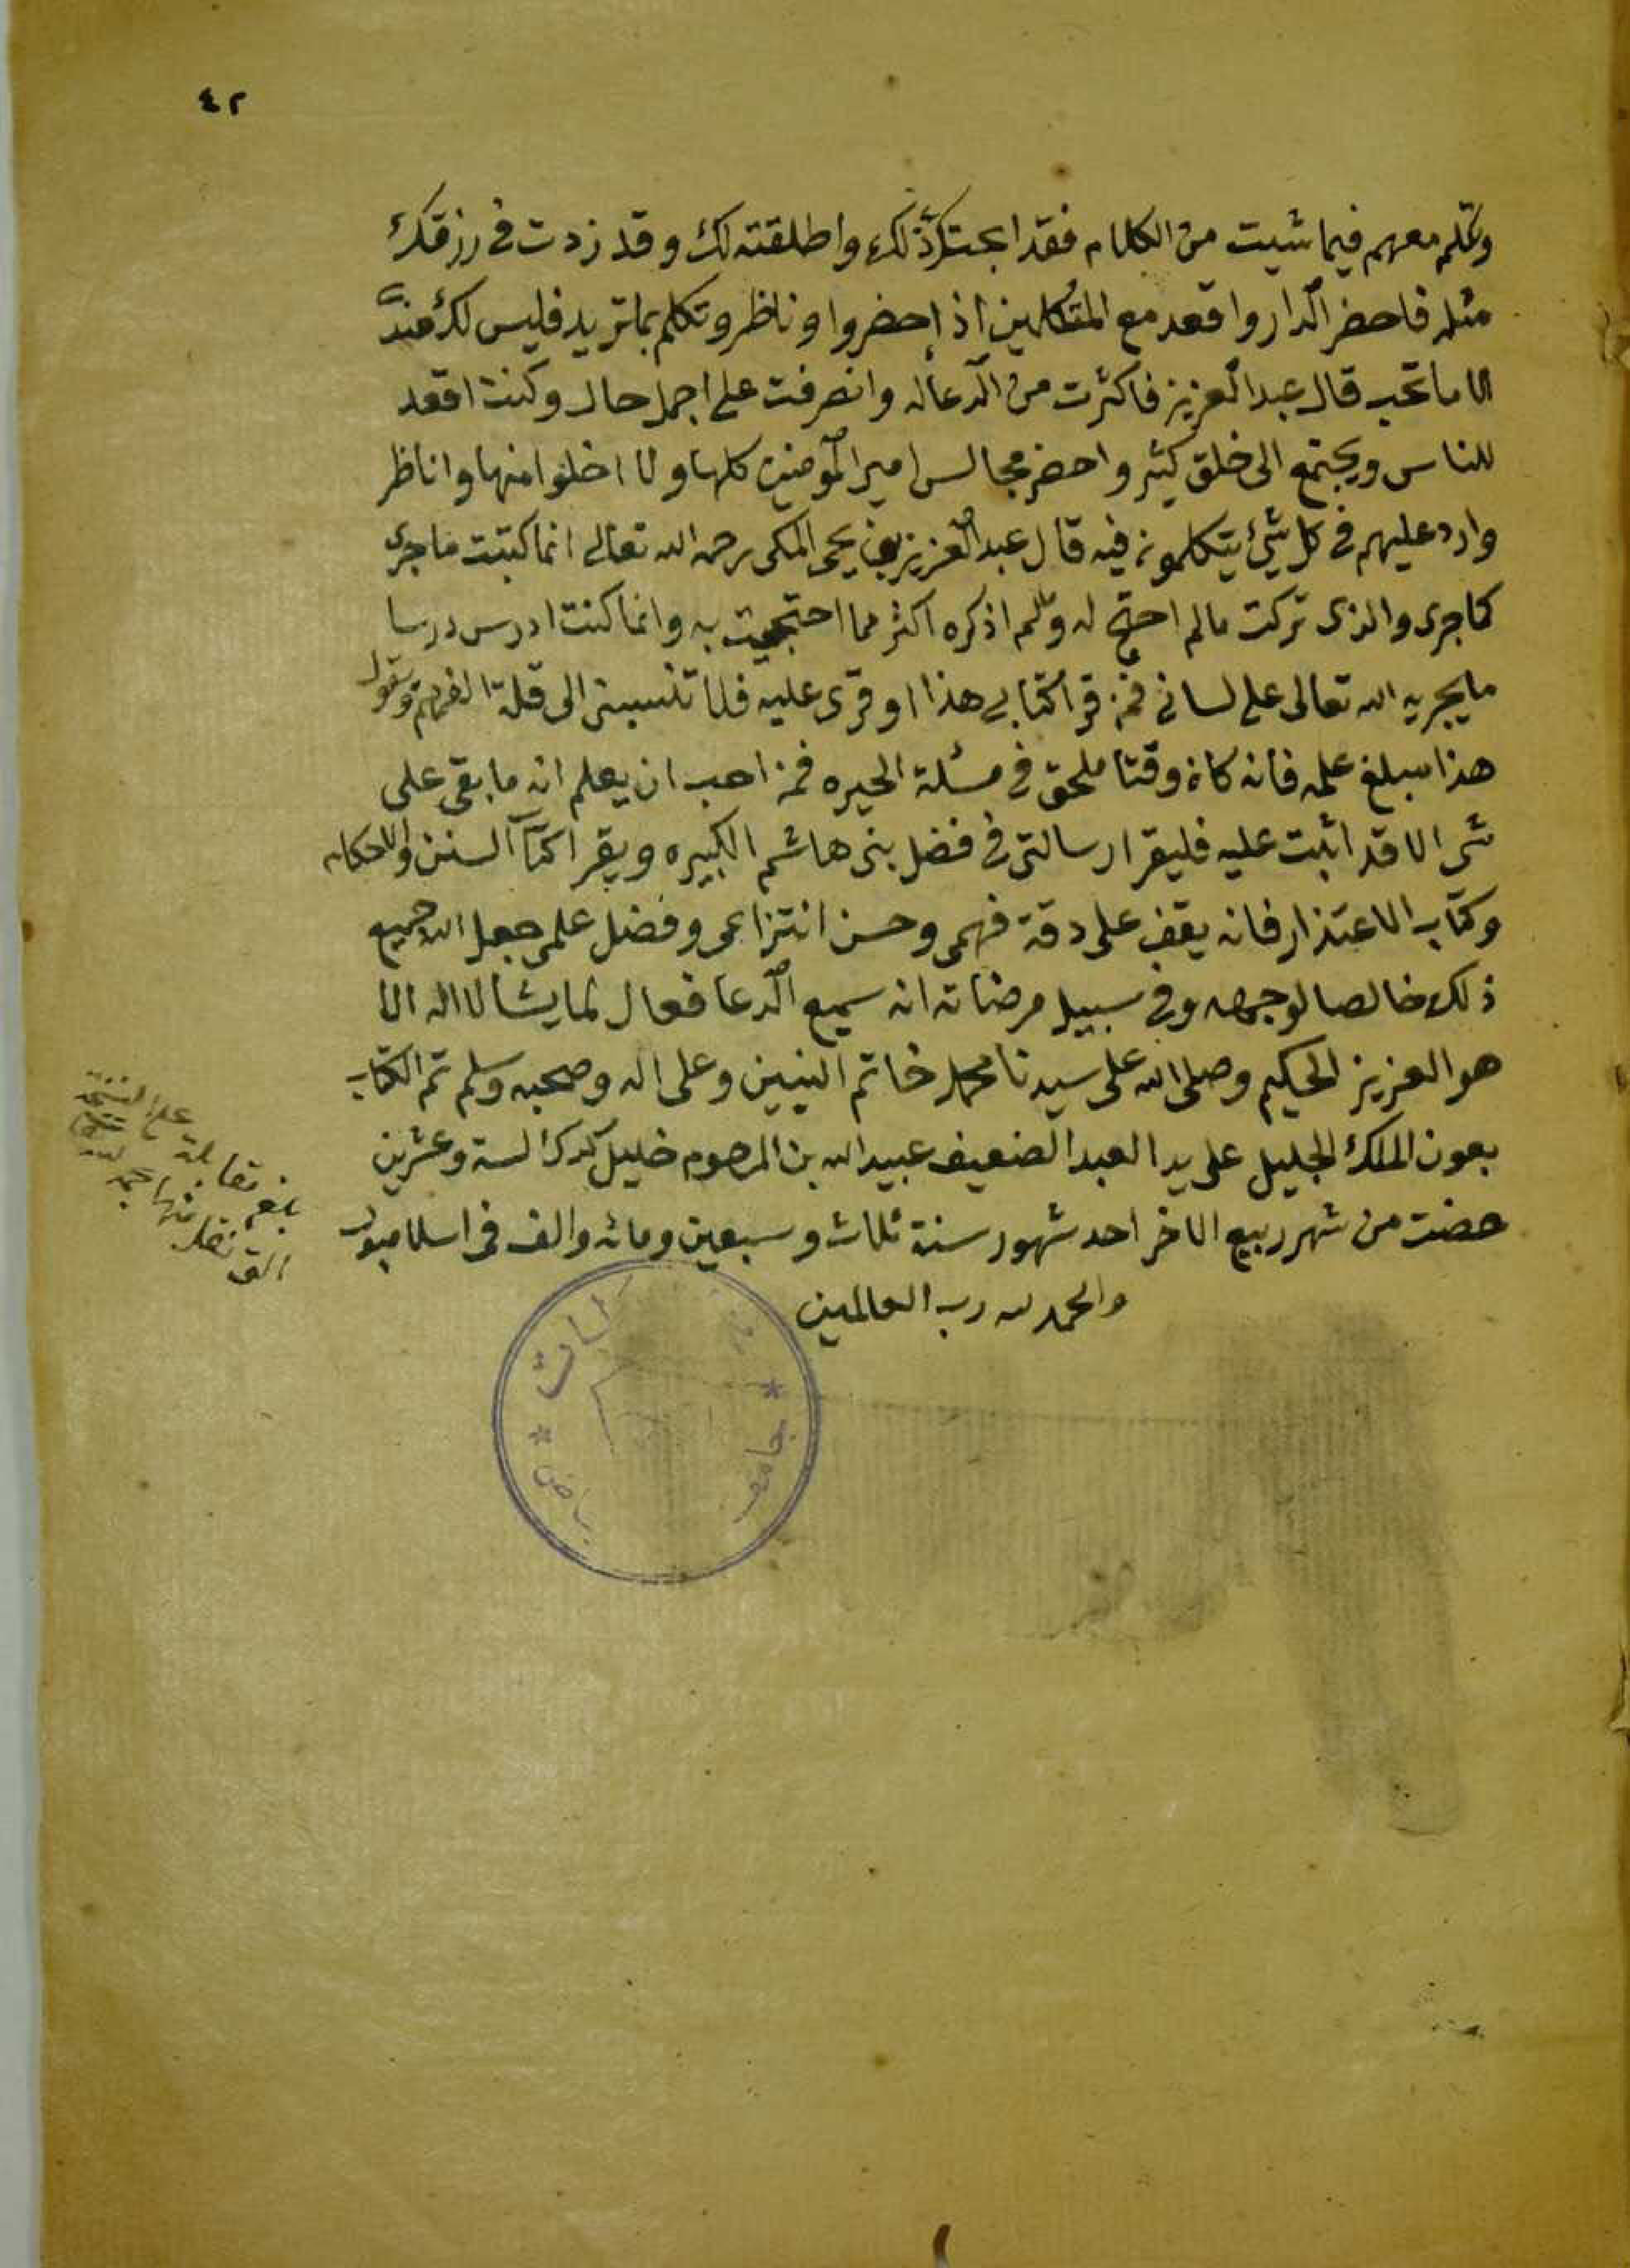 ٤٢
وتكلم معهم فيما شيت من الكلام فقد ابحتك ذلك واطلقته لك وقد زدت في رزقك
مثله فاحضر الدار واقعد مع المتكلمين اذ احضروا وناظر وتكلم بما تريد فليس لك عندنا
الا ما تحب قال عبد العزيز فاكثرت من الدعا له وانصرفت على اجمل حال وكنت اقعد
للناس ويجتمع الى خلق كثير واحضر مجالس امير المؤمنين كلها ولا اخلوا منها واناظر
وارد عليهم في كل شئ يتكلمون فيه قال عبد العزيز بن يحى المكى رحمه الله تعالى انما كتبت ما جرى
كما جرى والذى تركت مالم احتج له ولم اذكره اكثر مما احتججت به وانما كنت ادرس درسا
ما يجريه الله تعالى على لسانى فمن قرا كتابى هذا او قرى عليه فلا تنسبنى الى قلة الفهم ويقول
هذا مبلغ علمه فانه كان وقتا ملحق في مسئلة الحيره فمن احب ان يعلم انه ما بقى على
شى الا قد اتيت عليه فليقرا رسالتى في فضل بنى هاشم الكبيره ويقرا كتاب السنن والاحكام
وكتاب الاعتذار فانه يقف على دقة فهمى وحسن انتزاعى وفضل علمى جعل الله جميع
ذلك خالصا لوجهه وفى سبيل مرضاته انه سميع الدعا فعال لما يشا لا اله الا
هو العزيز الحكيم وصلى الله على سيدنا محمد خاتم النبيين وعلى اله وصحبه وسلم تم الكتاب
بعون الملك الجليل على يد العبد الضعيف عبيد الله بن المرحوم خليل لستة وعشرين
مضت من شهر ربيع الاخر احد شهور سنة ثلاث وسبعين ومائه والف فى اسلامبول
والحمد لله رب العالمين
بلغ مقابلة على النسخة
التى نقل منها
جامعة